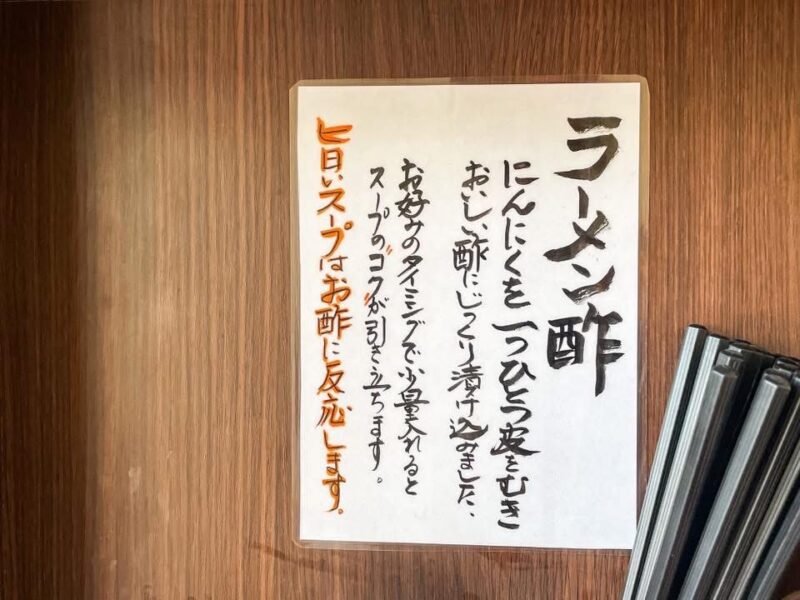 ラーメン酢
にんにくを一つひとつ皮をむき
おいしい酢にじっくり漬け込みました、
お好みのタイミングで少量入れると
スープの〝コク〟が引き立ちます。
旨いスープはお酢に反応します。